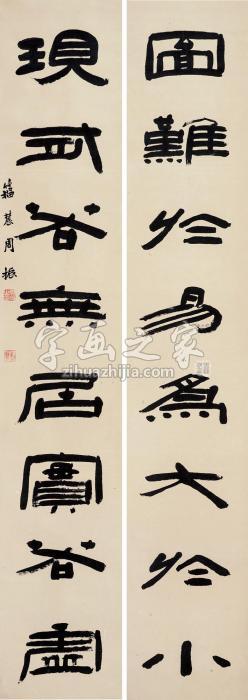 圖難於易爲大於小
現若無居實若虛
農周振
字画之家
zihuazhijia.com